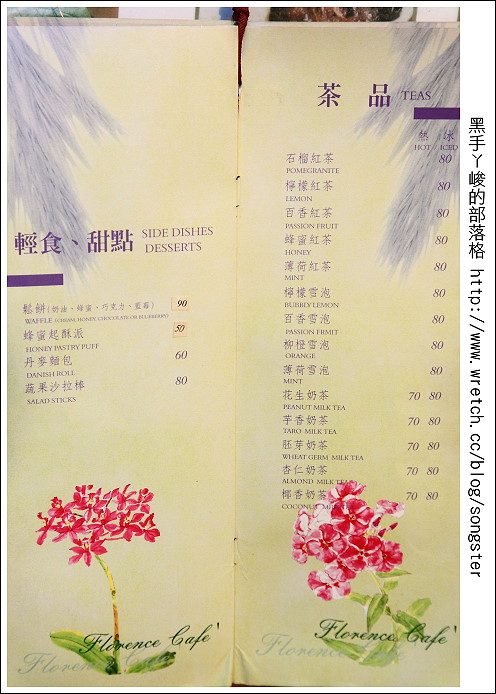 輕食、甜點 SIDE DISHES
DESSERTS
鬆餅(奶油、蜂蜜、巧克力、藍莓) 90
WAFFLE (CREAM, HONEY, CHOCOLATE OR BLUEBERRY)
蜂蜜起酥派 50
HONEY PASTRY PUFF
丹麥麵包 60
DANISH ROLL
蔬果沙拉棒 80
SALAD STICKS
Florence Cafe`
Florence Cafe`
茶 品 TEAS
熱 冰
HOT / ICED
石榴紅茶 80
POMEGRANITE
檸檬紅茶 80
LEMON
百香紅茶 80
PASSION FRUIT
蜂蜜紅茶 80
HONEY
薄荷紅茶 80
MINT
檸檬雪泡 80
BUBBLY LEMON
百香雪泡 80
PASSION FRMIT
柳橙雪泡 80
ORANGE
薄荷雪泡 80
MINT
花生奶茶 70 80
PEANUT MILK TEA
芋香奶茶 70 80
TARO MILK TEA
胚芽奶茶 70 80
WHEAT GERM MILK TEA
杏仁奶茶 70 80
ALMOND MILK TEA
椰香奶茶 70 80
COCONUT MILK TEA
Florence Cafe`
Florence Cafe`
黑手ㄚ峻的部落格 http://www.wretch.cc/blog/songster